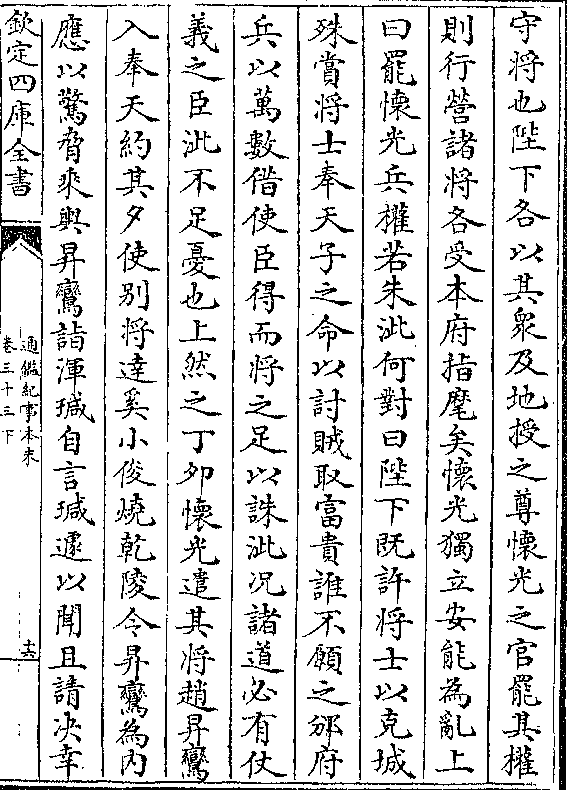 守將也陛下各以其衆及地授之尊懷光之官罷其權
則行營諸將各受本府指麾矣懷光獨立安能為亂上
曰罷懷光兵權若朱泚何對曰陛下既許將士以克城
殊賞將士奉天子之命以討賊取富貴誰不願之邠府
兵以萬數借使臣得而將之足以誅泚况諸道必有仗
義之臣泚不足憂也上然之丁夘懷光遣其將趙昇鸞
入奉天約其夕使别將達奚小俊燒乾陵令昇鸞為内
應以驚脅乘輿昇鸞詣渾瑊自言瑊遽以聞且請决幸
欽定四庫全書
通鑑紀事本末
卷三十三下
十六